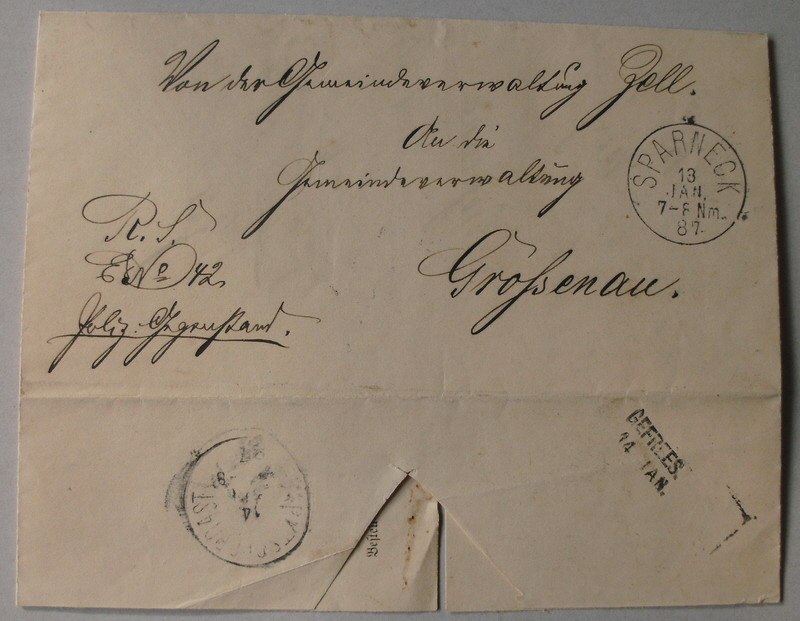 Von der Gemeindeverwaltung Zell.
An die
Gemeindeverwaltung
Grössenau.
R. S.
E. No 42
Poliz: Gegenstand.
SPARNECK
13
JAN.
7-8 Nm.
87.
GEFREES.
14 JAN.
14
Bestell